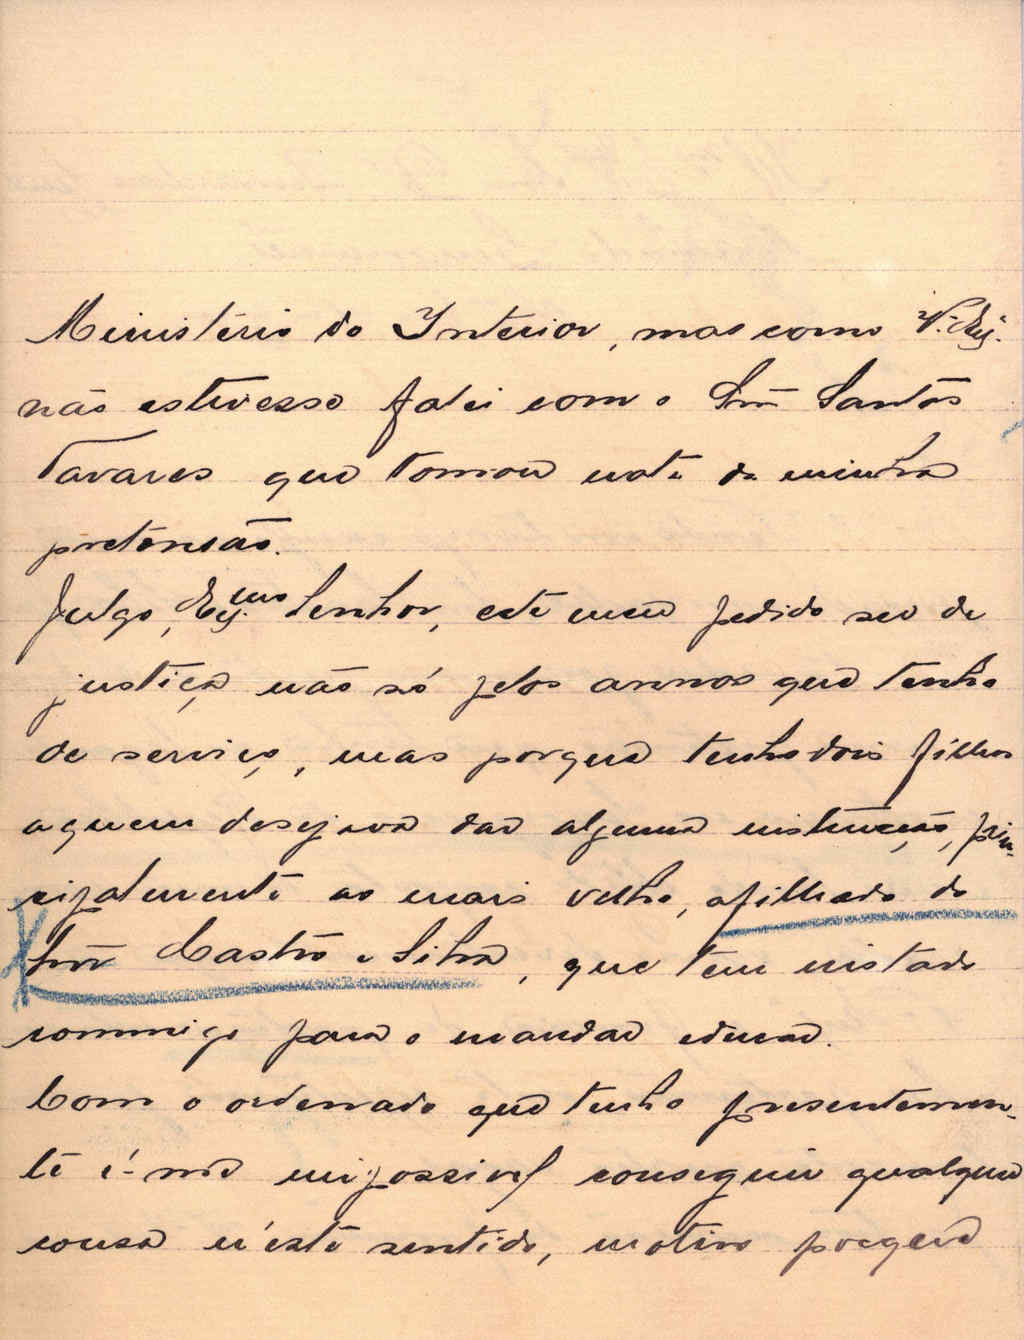 Ministério do Interior, mas como V. Exj.
não estivesse falei com o Snr Santos
Tavares que tomou nota da minha
pretensão.
Julgo, Exj.mo Senhor, este meu pedido ser de
justiça não só pelos annos que tenho
de serviço, mas porque tenho dois filhos
a quem desejava dar alguma instrucção, prin-
cipalmente ao mais velho, afilhado do
Snr Castro e Silva, que tem instado
commigo para o mandar educar.
Com o ordenado que tenho presentemen-
te é-me impossivel conseguir qualquer
cousa n'este sentido, motivo porque